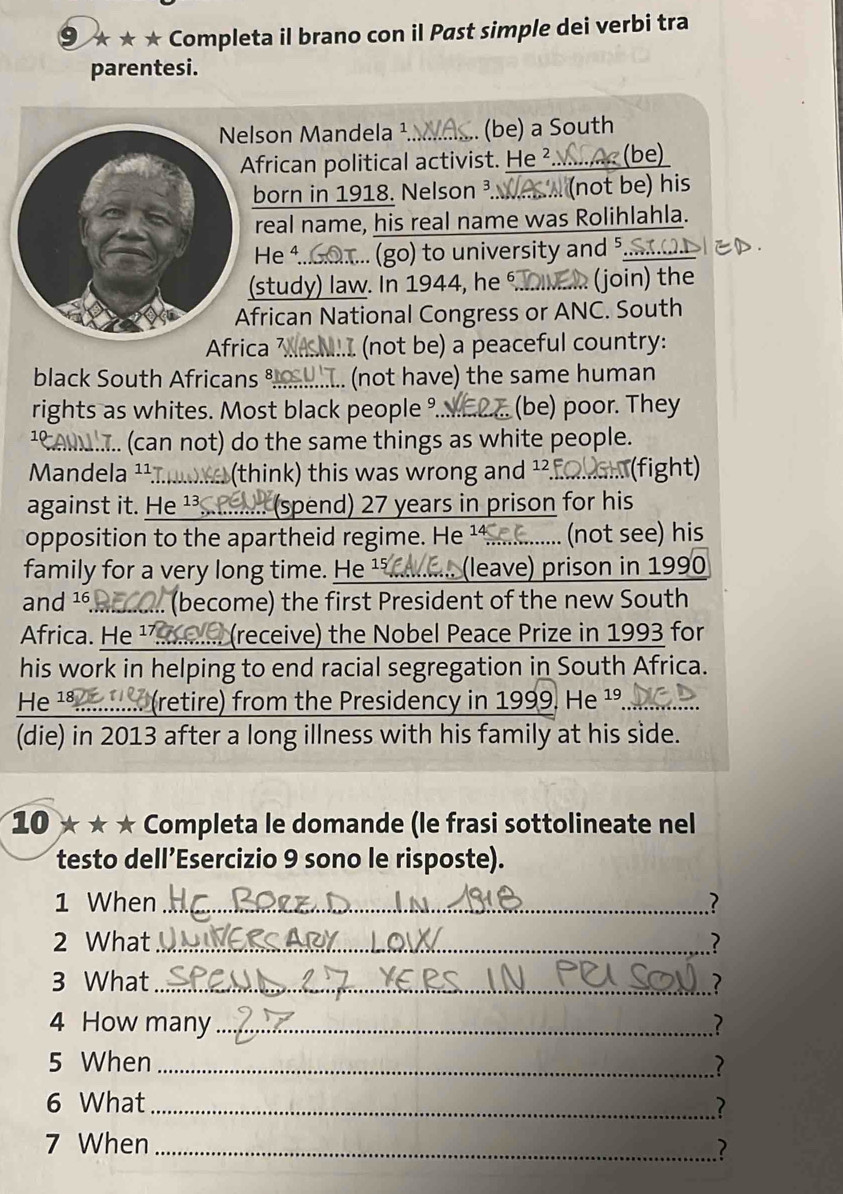 9 ★ ★ ★ Completa il brano con il Past simple dei verbi tra
parentesi.
Nelson Mandela 1 WAS (be) a South
African political activist. He 2 (be)
born in 1918. Nelson 3 WASN' (not be) his
real name, his real name was Rolihlahla.
He 4 GOT (go) to university and 5 STUDIED.
(study) law. In 1944, he 6 JOINED (join) the
African National Congress or ANC. South
Africa 7 WASN'T (not be) a peaceful country:
black South Africans 8 (not have) the same human
rights as whites. Most black people 9 WERE (be) poor. They
10 (can not) do the same things as white people.
Mandela 11 (think) this was wrong and 12 FOUGHT (fight)
against it. He 13 (spend) 27 years in prison for his
opposition to the apartheid regime. He 14 SEE (not see) his
family for a very long time. He 15 LEAVED (leave) prison in 1990
and 16 BECOM (become) the first President of the new South
Africa. He 17 (receive) the Nobel Peace Prize in 1993 for
his work in helping to end racial segregation in South Africa.
He 18 (retire) from the Presidency in 1999. He 19 DIED
(die) in 2013 after a long illness with his family at his side.
10 ★ ★ ★ Completa le domande (le frasi sottolineate nel
testo dell'Esercizio 9 sono le risposte).
1 When HE BORED IN 1918 ?
2 What UNIVERSARY LOW ?
3 What SPEND 27 YERS IN PRISON ?
4 How many 27 ?
5 When ?
6 What ?
7 When ?